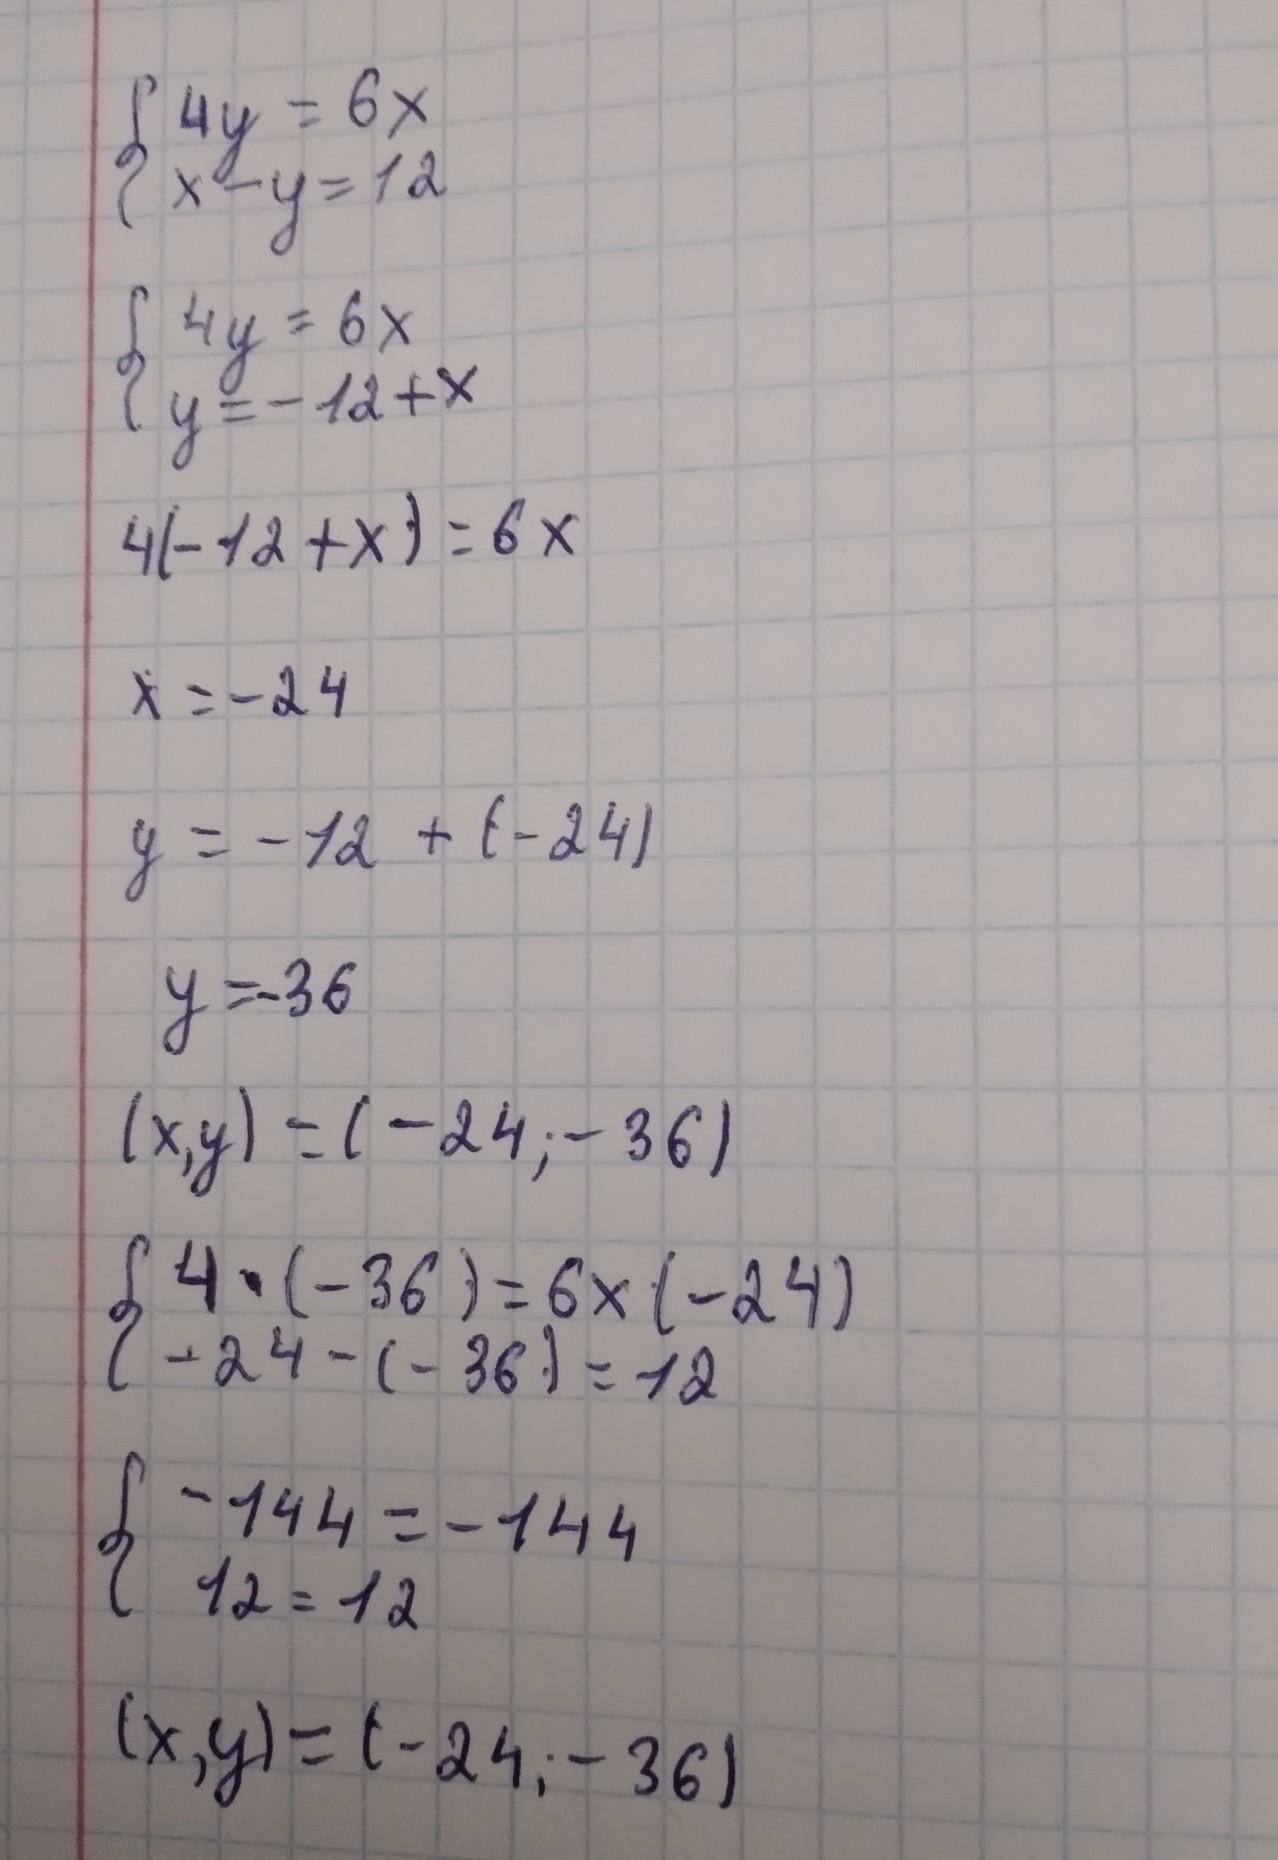 { 4y = 6x
x - y = 12
{ 4y = 6x
y = -12 + x
4(-12 + x) = 6x
x = -24
y = -12 + (-24)
y = -36
(x,y) = (-24; -36)
{ 4 · (-36) = 6x(-24)
-24 - (-36) = 12
{ -144 = -144
12 = 12
(x,y) = (-24; -36)